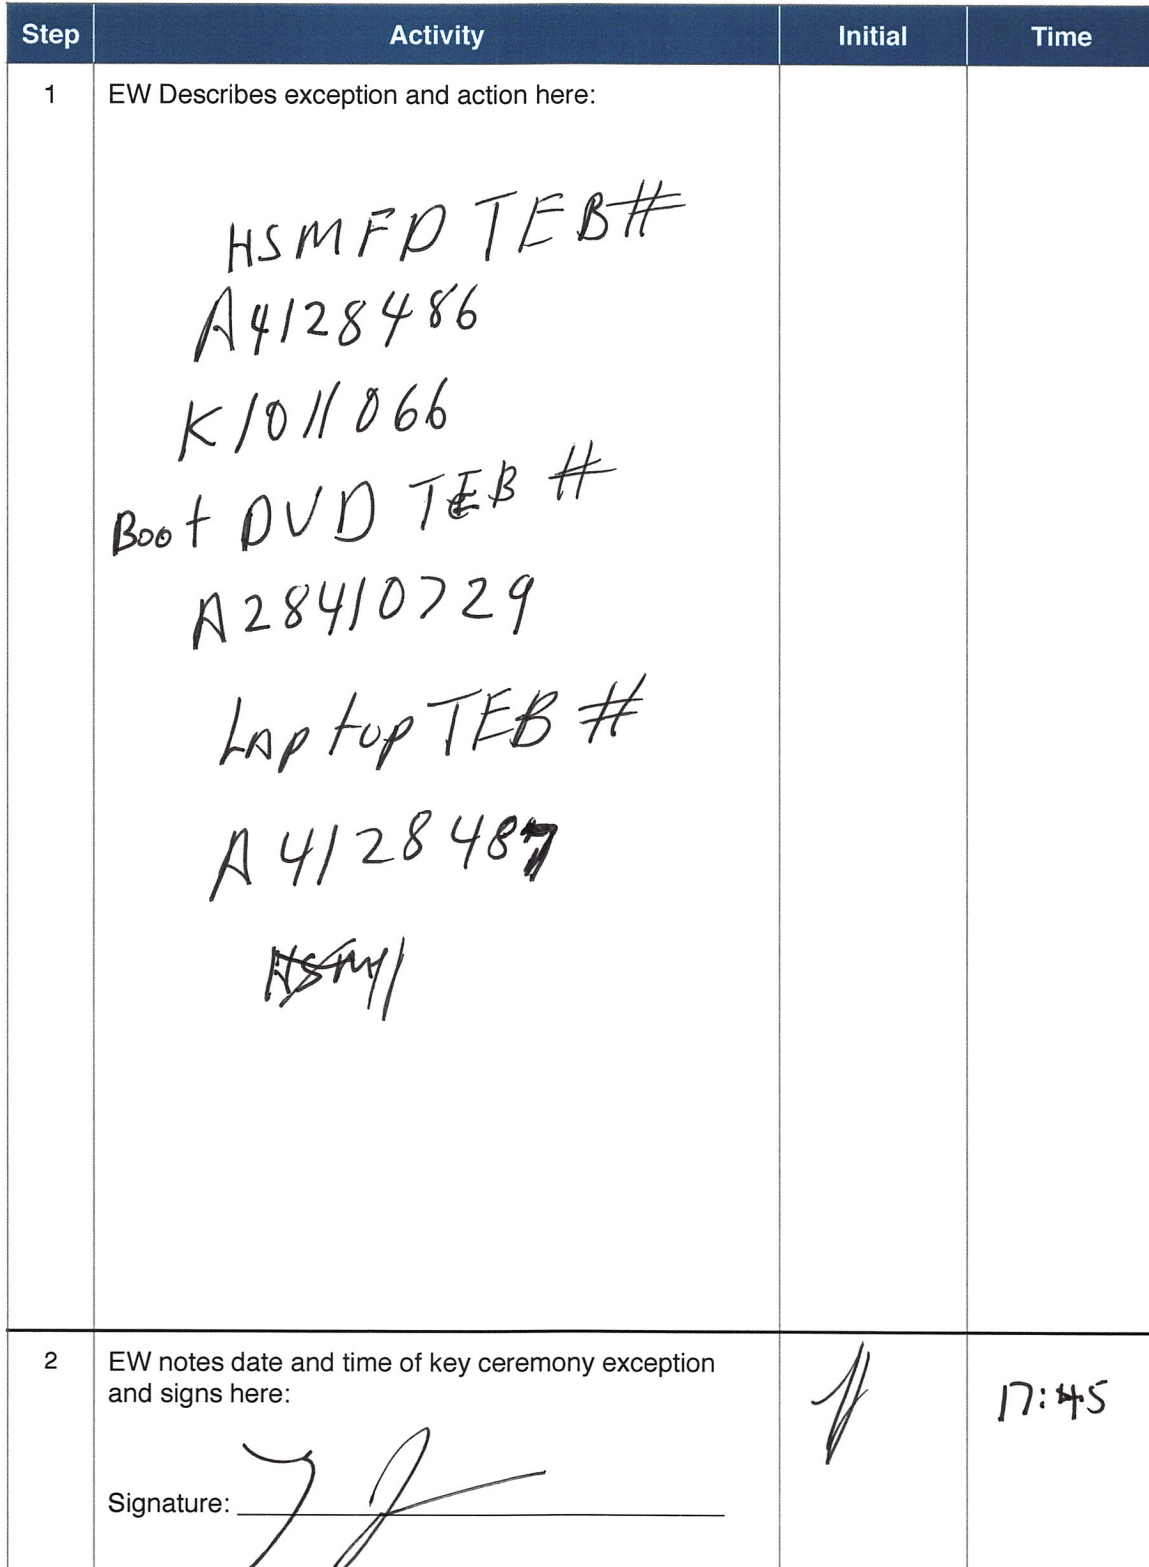 Step Activity Initial Time
1 EW Describes exception and action here:
HSMFD TEB#
A4128486
K1011066
Boot DVD TEB #
A28410729
Laptop TEB #
A4128487
2 EW notes date and time of key ceremony exception
and signs here:
17:45
Signature: